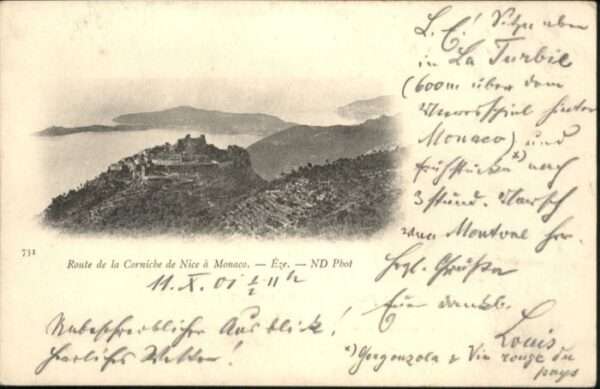 L. C.! Sitze oben
in La Turbie
(600m über dem
Meeresspiel hinter
Monaco) und
frühstücke *) nach
3 stünd. Marsch
von Mentone her.
Hrzl. Grüße
Euer dankb.
Louis
731
Route de la Corniche de Nice à Monaco. — Èze. — ND Phot
11. X. 01 ½ 11 h
Unbeschreiblicher Ausblick!
Herrliches Wetter!
*) Gorgonzola & Vin rouge du
pays